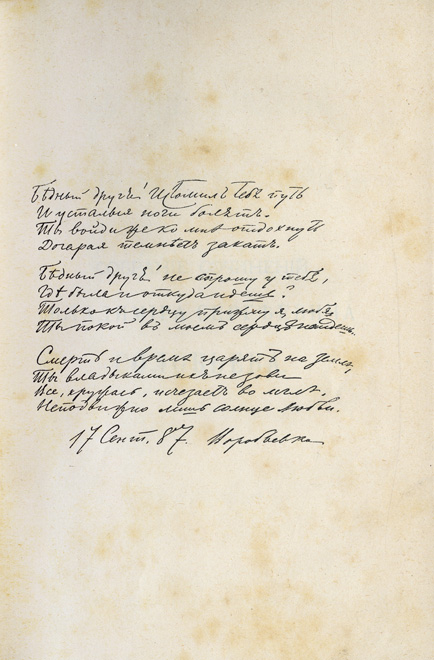 Бѣдный другъ! Истомилъ тебѣ путь
И усталыя ноги болятъ.
Ты войди же ко мнѣ отдохнуть
Догорая темнѣетъ закатъ.
Бѣдный другъ! не спрошу у тебѣ,
Гдѣ была и откуда идешь?
Только къ сердцу прижму я, любя
Ты покой въ моемъ сердцѣ найдешь.
Смерть и время царятъ на землѣ,
Ты владыками ихъ не зови
Все, кружась, исчезаетъ во мглѣ,
Неподвижно лишь солнце любви.
17 Сент. 87. Воробьевка